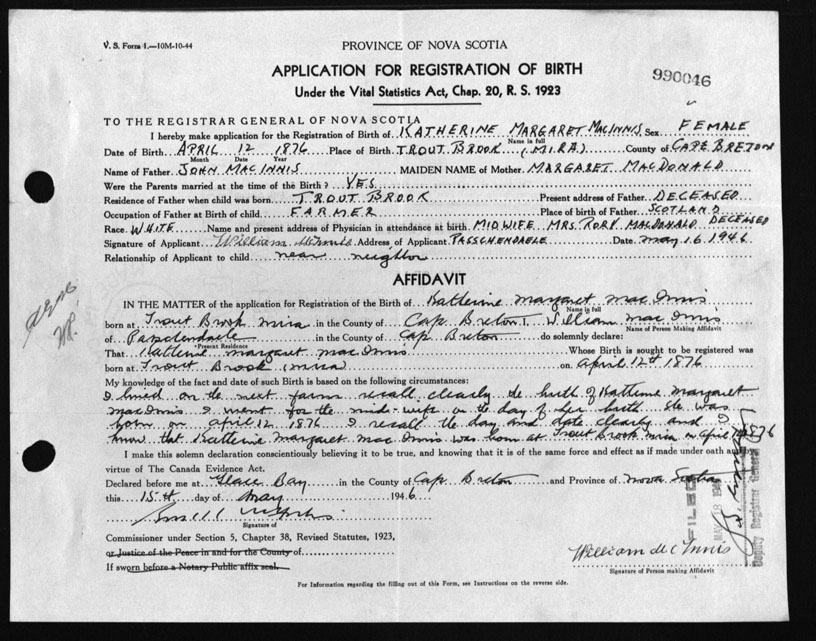 V. S. Form 1.—10M-10-44
PROVINCE OF NOVA SCOTIA
APPLICATION FOR REGISTRATION OF BIRTH
990046
Under the Vital Statistics Act, Chap. 20, R. S. 1923
TO THE REGISTRAR GENERAL OF NOVA SCOTIA
I hereby make application for the Registration of Birth of KATHERINE MARGARET MACINNIS Sex FEMALE
Name in full
Date of Birth APRIL 12 1876 Place of Birth TROUT BROOK (MIRA) County of CAPE BRETON
Month Date Year
Name of Father JOHN MACINNIS MAIDEN NAME of Mother MARGARET MACDONALD
Were the Parents married at the time of the Birth? YES
Residence of Father when child was born TROUT BROOK Present address of Father DECEASED
Occupation of Father at Birth of child FARMER Place of birth of Father SCOTLAND
Race WHITE Name and present address of Physician in attendance at birth MIDWIFE MRS. RORY MACDONALD DECEASED
Signature of Applicant William Address of Applicant PASSCHENDAELE Date May 16 1946
Relationship of Applicant to child near neighbor
AFFIDAVIT
IN THE MATTER of the application for Registration of the Birth of Katherine Margaret Mac Innis
Name in full
born at Trout Brook Mira in the County of Cap Breton I, William Mac Innis
Name of Person Making Affidavit
of in the County of Cap Breton do solemnly declare:
*Present Residence
That Katterine Margaret Mac Innis Whose Birth is sought to be registered was
born at Trout Brook (Mira) on April 12th 1876
My knowledge of the fact and date of such Birth is based on the following circumstances:
I lived on the next farm recall clearly the birth of Katterine Margaret
Mac Innis I went for the mid-wife on the day of her birth She was
born on April 12 1876 I recall the day and date clearly and I
know that Katterine Margaret Mac Innis was born at Trout Brook Mira on April 12 1876
I make this solemn declaration conscientiously believing it to be true, and knowing that it is of the same force and effect as if made under oath and by
virtue of The Canada Evidence Act.
Declared before me at Glace Bay in the County of Cap Breton and Province of Nova Scotia
this 15th day of May 1946
Signature of
Commissioner under Section 5, Chapter 38, Revised Statutes, 1923,
or Justice of the Peace in and for the County of
If sworn before a Notary Public affix seal.
William Innis
Signature of Person making Affidavit
FILED
MAY 18 1946
Deputy Registrar General
For Information regarding the filling out of this Form, see Instructions on the reverse side.